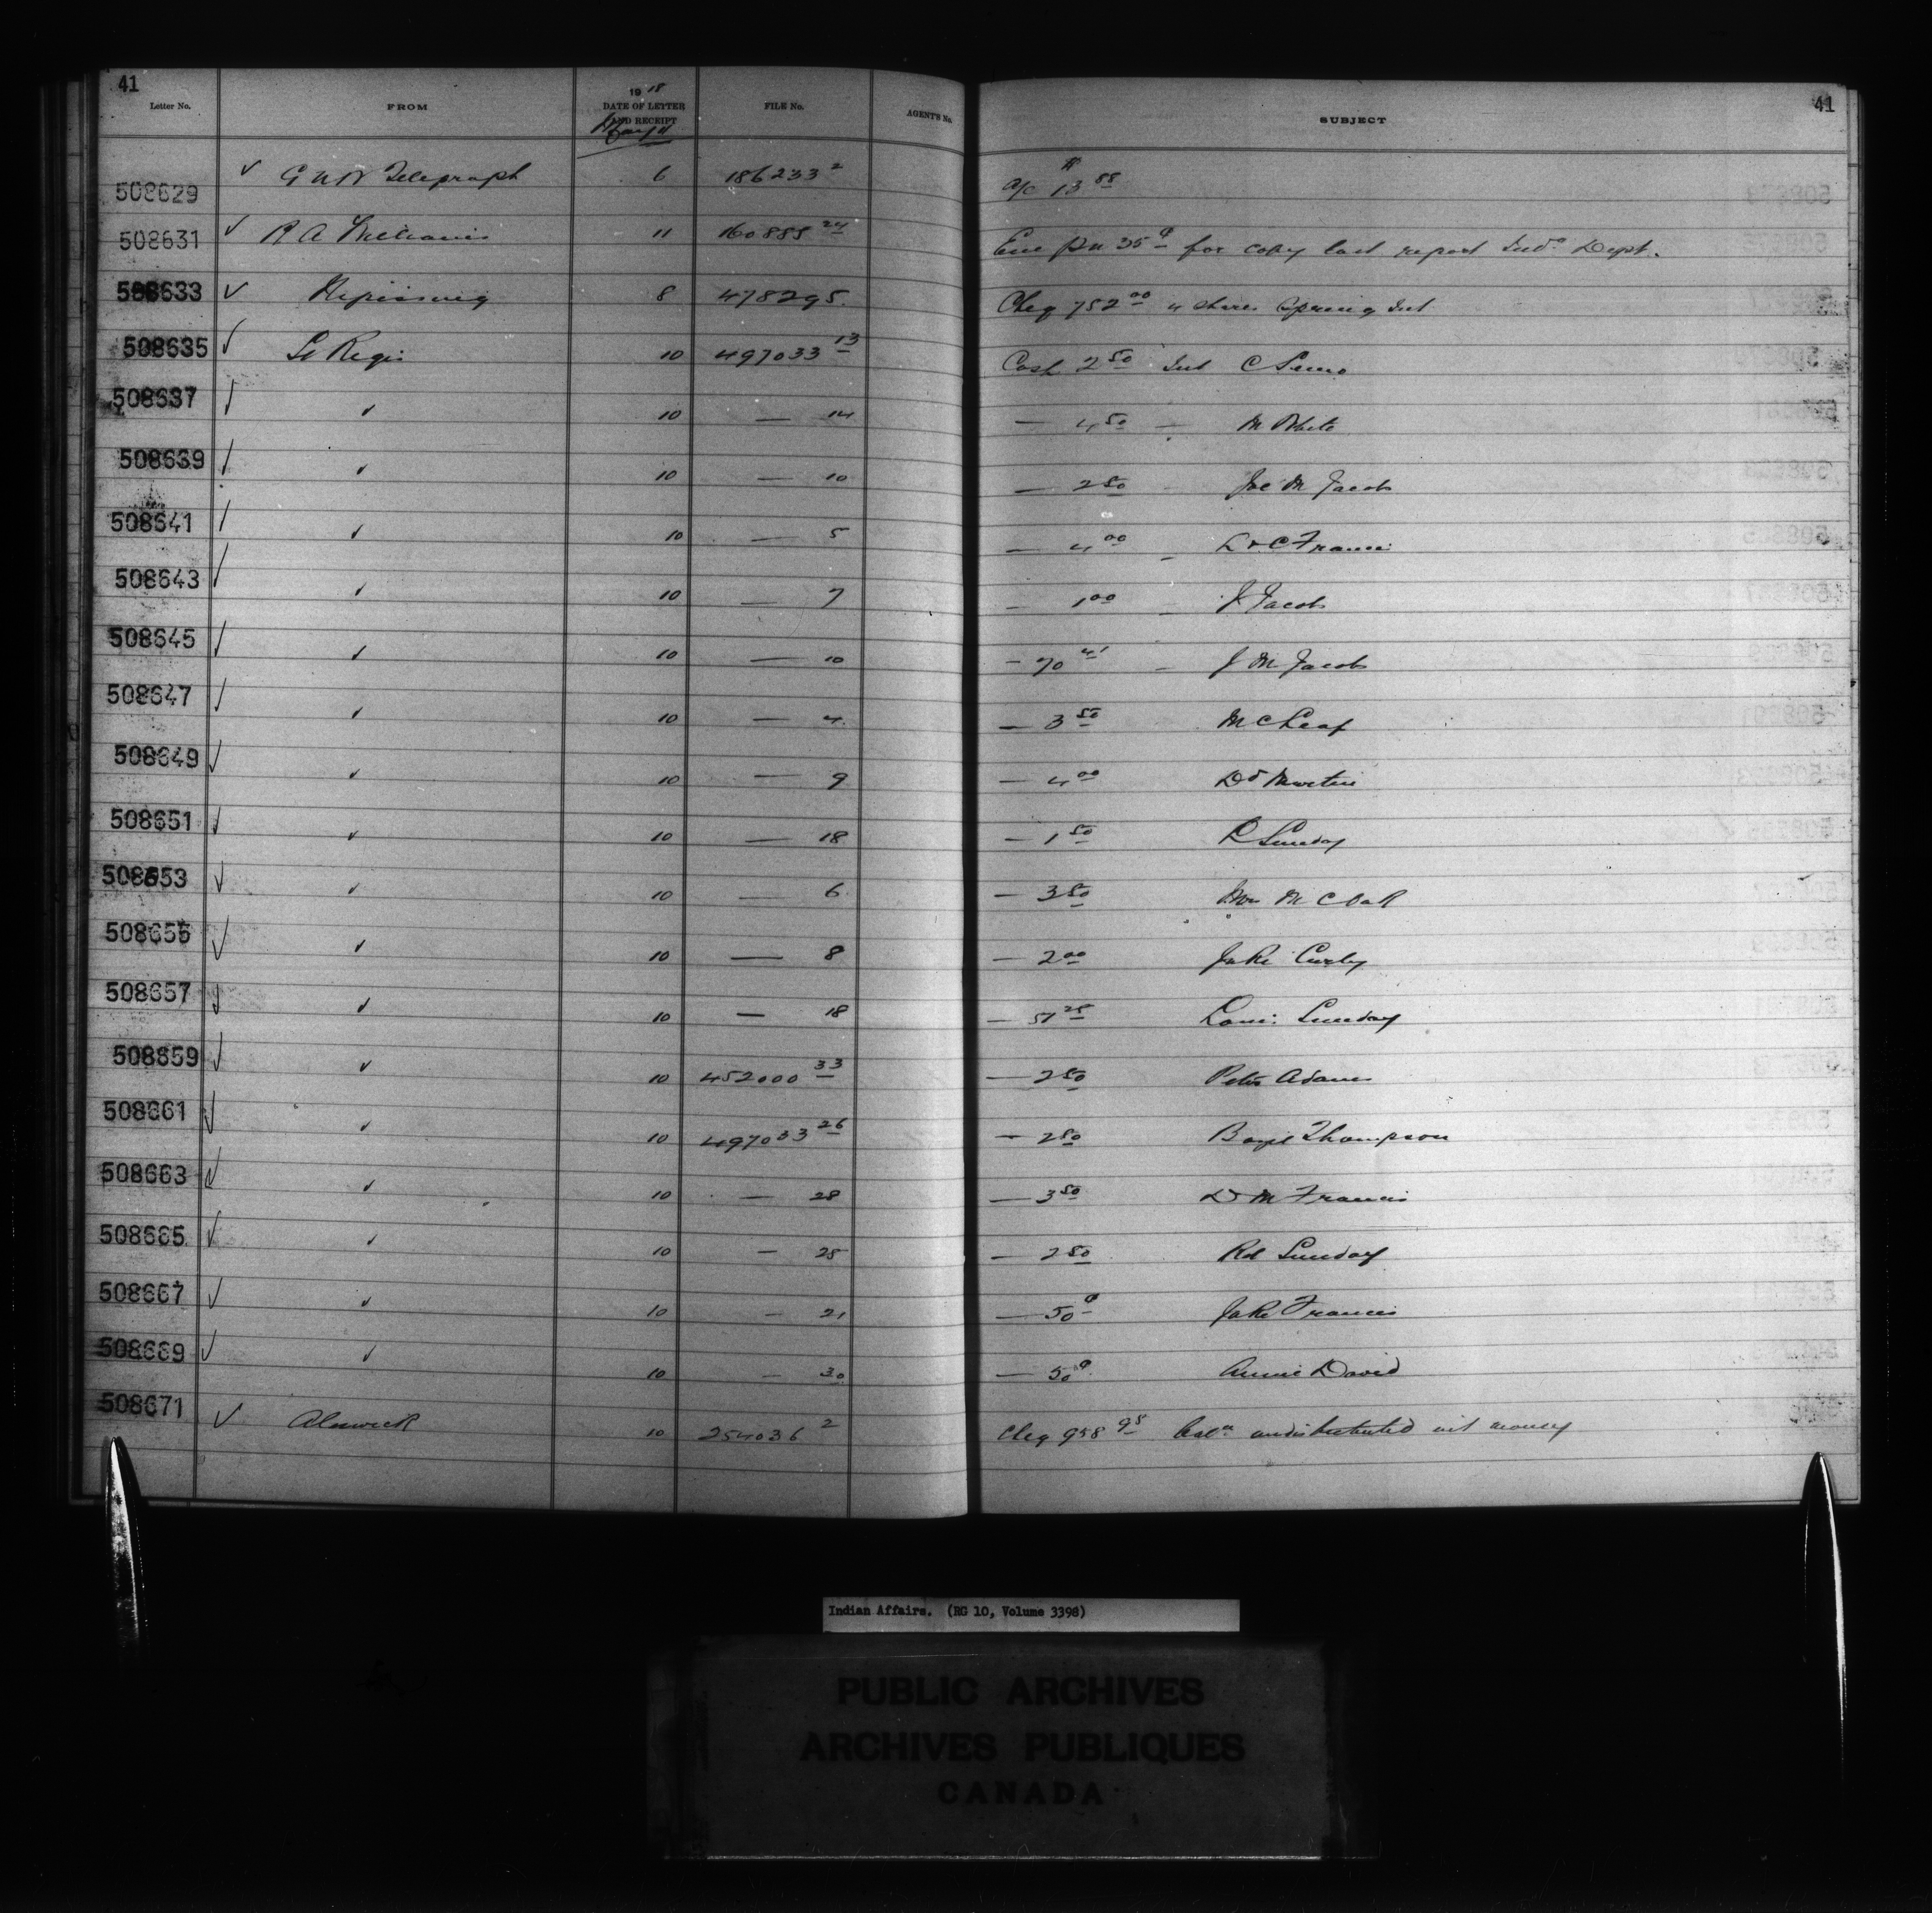 41
41
Letter No. FROM 1918 DATE OF LETTER AND RECEIPT FILE No. AGENT'S No. SUBJECT
May 11
508629 ✓ G N W Telegraph 6 186233 2 a/c $13 88
508631 ✓ R A 11 160888 24 Enc 35¢ for copy last report Ind. Dept.
508633 ✓ Nipissing 8 478295 Cheq 752 00 Spring Int
508635 ✓ St Regis 10 497033 13 Cash 2 50 Int C
508637 ✓ ✓ 10 — 14 — 4 50 — M White
508639 ✓ ✓ 10 — 10 — 2 50 Joe M Jacob
508641 ✓ ✓ 10 — 5 — 4 00 — Francis
508643 ✓ ✓ 10 — 7 — 1 00 — J. Jacob
508645 ✓ ✓ 10 — 10 — 70 41 — J M Jacob
508647 ✓ ✓ 10 — 4 — 3 50 M C Leaf
508649 ✓ ✓ 10 — 9 — 4 00 Martin
508651 ✓ ✓ 10 — 18 — 1 50 L Sunday
508653 ✓ ✓ 10 — 6 — 3 50 M C Oak
508655 ✓ ✓ 10 — 8 — 2 00 Jake Curly
508657 ✓ ✓ 10 — 18 — 51 25 Louis Sunday
508659 ✓ ✓ 10 452000 33 — 2 50 Peter Adams
508661 ✓ ✓ 10 497033 26 — 2 50 Thompson
508663 ✓ ✓ 10 — 28 — 3 50 M Francis
508665 ✓ ✓ 10 — 25 — 2 50 Sunday
508667 ✓ ✓ 10 — 21 — 50¢ Jake Francis
508669 ✓ ✓ 10 — 30 — 50¢ Annie David
508671 ✓ Alnwick 10 254036 2 Cheq 958 95 Balce undistributed int money
Indian Affairs. (RG 10, Volume 3398)
PUBLIC ARCHIVES
ARCHIVES PUBLIQUES
CANADA